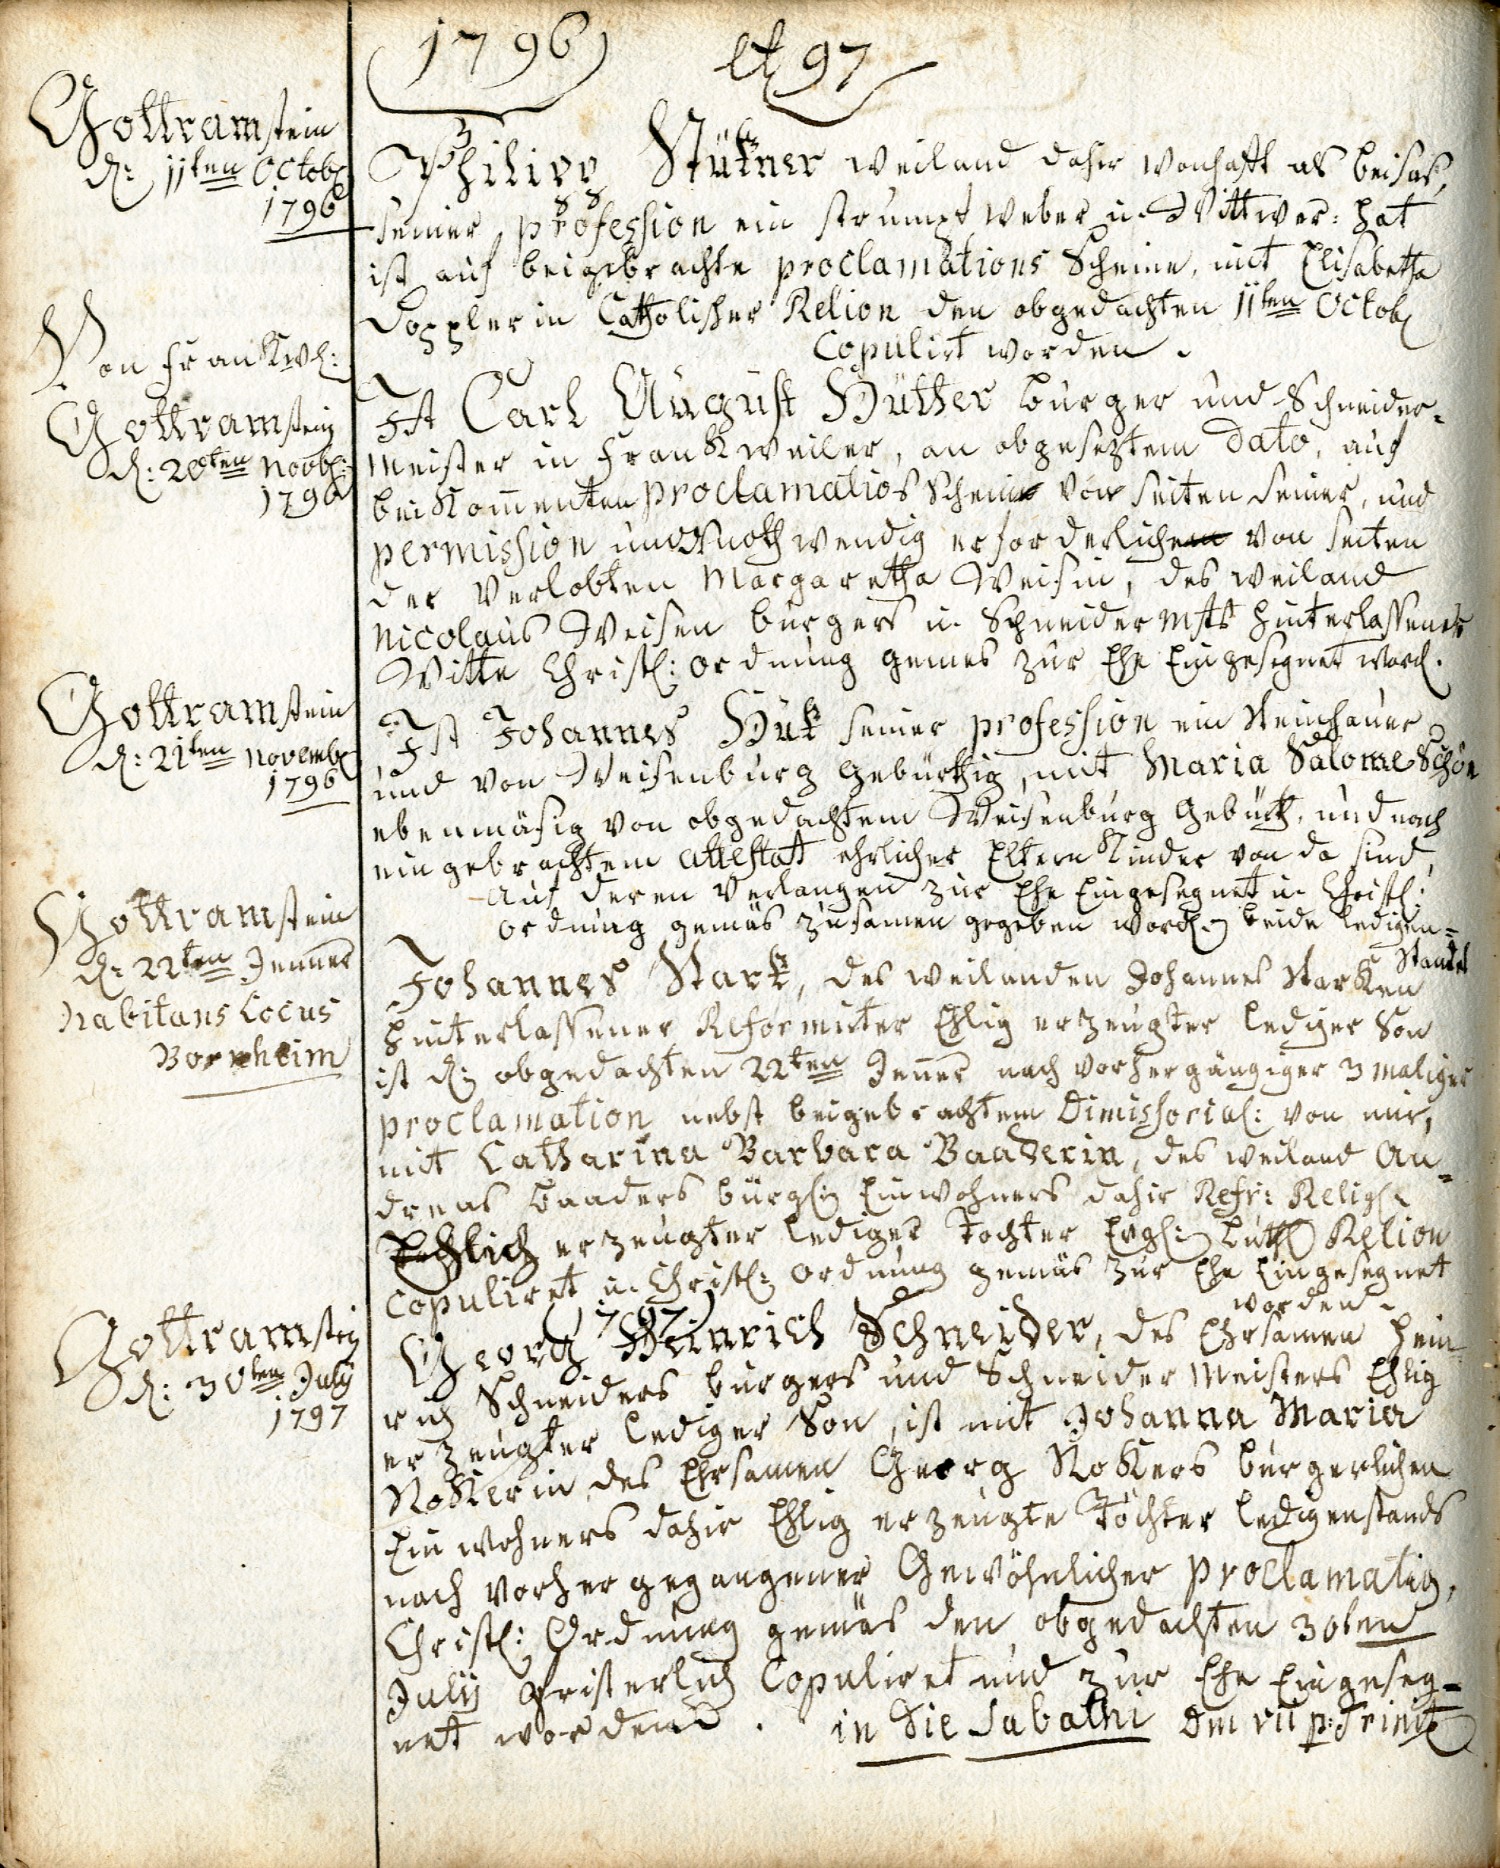 1796 et 97
Gottramstein
d: 11ten Octob
1796
Philipp Stükner weiland dahir wonhafft als beisas,
seiner profession ein strumpf weber u. Wittwer: hat
ist auf beigebrachte proclamations Scheine, mit Elisabetha
Dopplerin Catholischer Relion den obgedachten 11ten Octob
Copulirt worden.
Von Frankwl:
Gottramstein
d: 20ten Novb:
1796
Ist Carl August Hütther burger und Schneider-
meister in Frankweiler, an obgeseztem Dato, auf
beikom̄enten proclamatios Schein von seiten seiner, und
permission und nothwendig erforderlichen von seiten
der Verlobten Margaretha Weisin, des weiland
Nicolaus Weisen burgers u. Schneider Mstrs hinterlassener
Witte Christl: ordnung gemes zur Ehe Eingesegnet word.
Gottramstein
d: 21ten Novemb
1796
Ist Johannes Huk seiner profession ein Steinhauer
und von Weisenburg gebürthig, mit Maria Salome Schön
ebenmäsig von obgedachtem Weisenburg gebürth, und nach
eingebrachtem attestat ehrlicher Eltern Kinder von da sind,
auf deren Verlangen zur Ehe Eingesegnet u. Christl:
ordnung gemäs zusamen gegeben word. beide ledigen-
Standts
Gottramstein
d: 22ten Jenner
habitans Locus
Bornheim
Johannes Stark, des weilanden Johannes Starken
hinterlassener Reformirter Ehlig erzeugter lediger Son
ist d: obgedachten 22ten Jenner nach vorhergängiger 3 maliger
proclamation nebst beigebrachtem Dimissorial: von mir,
mit Catharina Barbara Baaderin, des weiland An-
dreas Baaders bürgl: Einwohners dahir Refr: Relig.
Ehlich erzeugter lediger Tochter Evgl: Luth Relion
copuliret u. Christl: ordnung gemäs zur Ehe Eingesegnet
worden.
1797
Gottramstein
d: 30ten July
1797
Georg Heinrich Schneider, des Ehrsamen Hein-
rich Schneiders burgers und Schneider Meisters Ehlig
erzeugter lediger Son, ist mit Johanna Maria
Nokerin des Ehrsamen Georg Nokers bürgerlichen
Einwohners dahir Ehlig erzeugte Töchter ledigenstands
nach vorhergegangener Gewöhnlicher proclamatio,
Christl: Ordnung gemäs den obgedachten 30ten
July Pristerlich Copuliret und zur Ehe Eingeseg-
net worden. in die Sabathi Dm vii p: Trinit